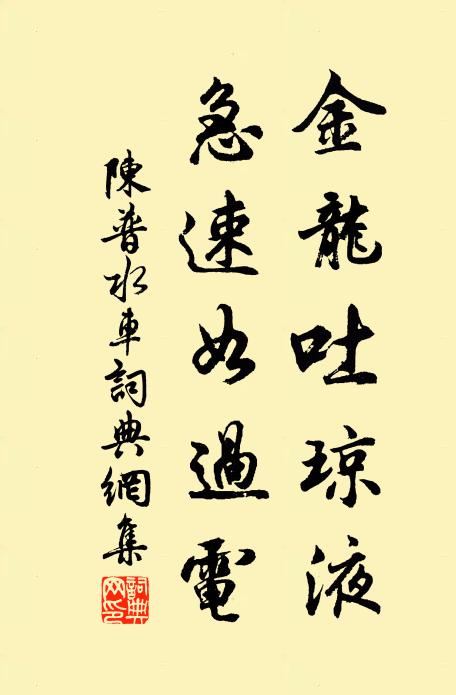 金龍吐琼液
急速如過電
陳普水車詞典網集
詞典網印